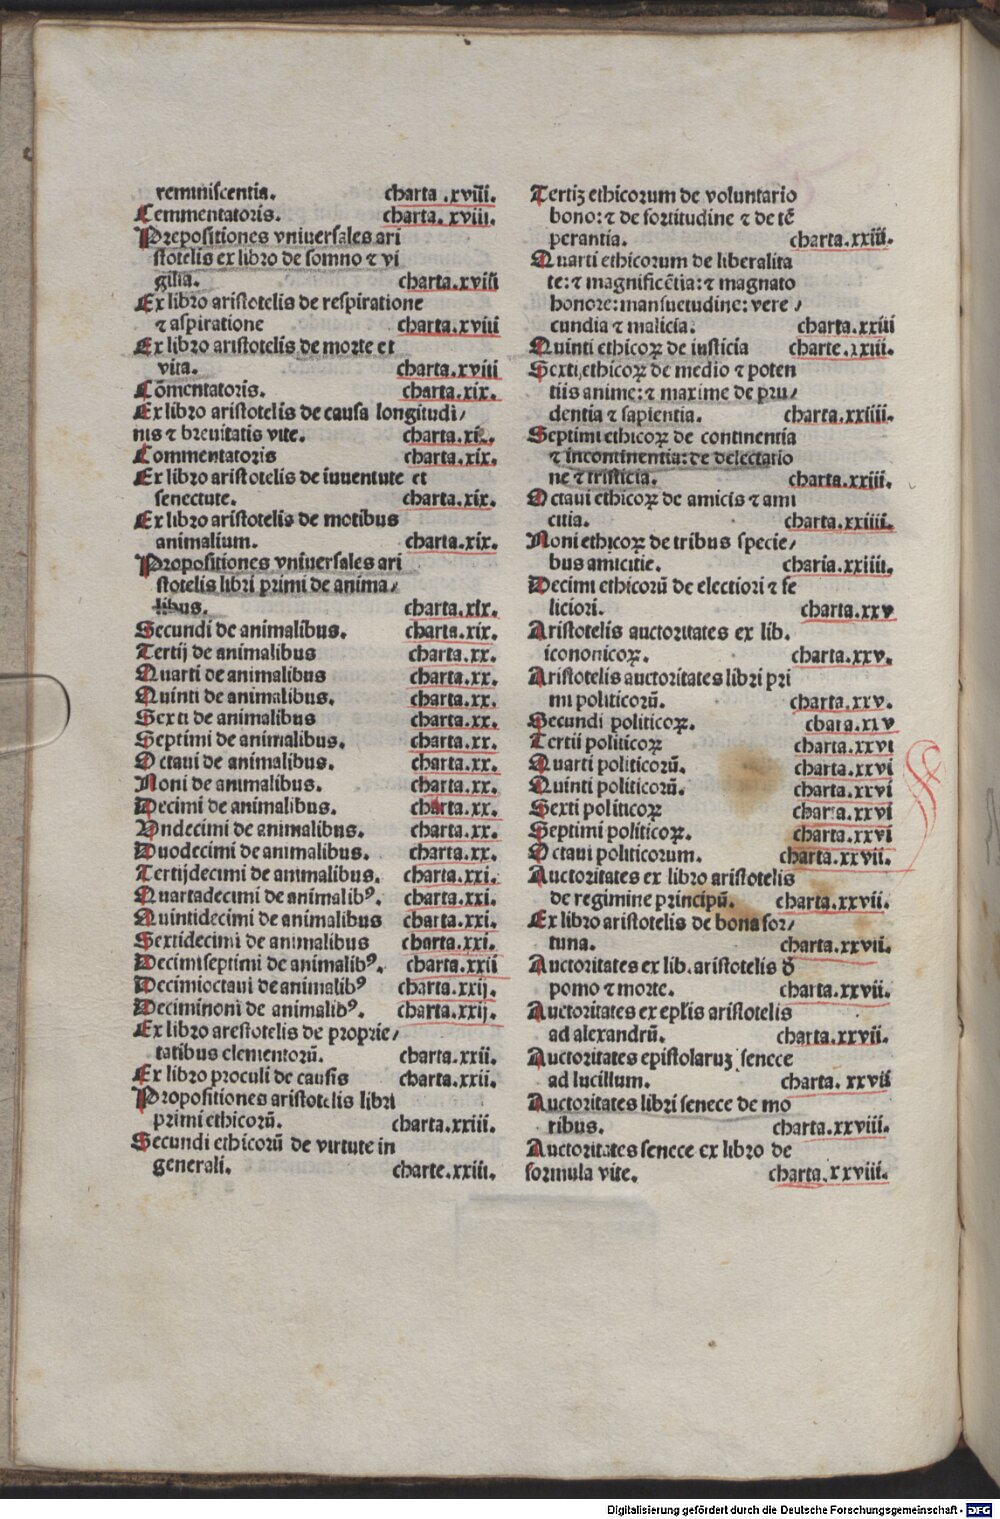 reminiscentis. charta .xviii.
Cemmentatoris. charta. xviii.
Prepositiones vniuersales ari
stotelis ex libro de somno ⁊ vi
gilia. charta.xviii
Ex libro aristotelis de respiratione
⁊ aspiratione charta.xviii
Ex libro aristotelis de morte et
vita. charta.xviii
Cōmentatoris. charta.xix.
Ex libro aristotelis de causa longitudi/
nis ⁊ breuitatis vite. charta.xi.
Commentatoris charta.xix.
Ex libro aristotelis de iuuentute et
senectute. charta.xix.
Ex libro aristotelis de motibus
animalium. charta.xix.
Propositiones vniuersales ari
stotelis libri primi de anima/
libus. charta.xix.
Secundi de animalibus. charta.xix.
Tertij de animalibus charta.xx.
Quarti de animalibus charta.xx.
Quinti de animalibus. charta.xx.
Sexti de animalibus charta.xx.
Septimi de animalibus. charta.xx.
Octaui de animalibus. charta.xx.
Noni de animalibus. charta.xx.
Decimi de animalibus. charta.xx.
Vndecimi de animalibus. charta.xx.
Duodecimi de animalibus. charta.xx.
Tertijdecimi de animalibus. charta.xxi.
Quartadecimi de animalibꝰ. charta.xxi.
Quintidecimi de animalibus charta.xxi.
Sextidecimi de animalibus charta.xxi.
Decimiseptimi de animalibꝰ. charta.xxii
Decimioctaui de animalibꝰ charta.xxij.
Deciminoni de animalibꝰ. charta.xxij.
Ex libro arestotelis de proprie/
tatibus elementorū. charta.xxii.
Ex libro proculi de causis charta.xxii.
Propositiones aristotelis libri
primi ethicorū. charta.xxiii.
Secundi ethicorū de virtute in
generali. charte.xxiii.
Tertiȝ ethicorum de voluntario
bono: ⁊ de fortitudine ⁊ de tē
perantia. charta.xxiii.
Quarti ethicorum de liberalita
te: ⁊ magnificētia: ⁊ magnato
honore: mansuetudine: vere/
cundia ⁊ malicia. charta.xxiii
Quinti ethicoꝝ de iusticia charte.xxiii.
Sexti, ethicoꝝ de medio ⁊ poten
tiis anime: ⁊ maxime de pru/
dentia ⁊ sapientia. charta.xxiiii.
Septimi ethicoꝝ de continentia
⁊ incontinentia: de delectatio
ne ⁊ tristicia. charta.xxiii.
Octaui ethicoꝝ de amicis ⁊ ami
citia. charta.xxiiii.
Noni ethicoꝝ de tribus specie/
bus amicitie. charia.xxiiii.
Decimi ethicorū de electiori ⁊ fe
liciori. charta.xxv
Aristotelis auctoritates ex lib.
icononicoꝝ. charta.xxv.
Aristotelis auctoritates libri pri
mi politicorū. charta.xxv.
Secundi politicoꝝ. chara.xxv
Tertii politicoꝝ charta.xxvi
Quarti politicorū. charta.xxvi
Quinti politicorū. charta.xxvi
Sexti politicoꝝ charta.xxvi
Septimi politicoꝝ. charta.xxvi
Octaui politicorum. charta.xxvii.
Auctoritates ex libro aristotelis
de regimine principū. charta.xxvii.
Ex libro aristotelis de bona for/
tuna. charta.xxvii.
Auctoritates ex lib. aristotelis đ
pomo ⁊ morte. charta.xxvii.
Auctoritates ex epłis aristotelis
ad alexandrū. charta.xxvii.
Auctoritates epistolaruȝ senece
ad lucillum. charta. xxvii
Auctoritates libri senece de mo
ribus. charta.xxviii.
Auctoritates senece ex libro de
formula vite. charta.xxviii.
Digitalisierung gefördert durch die Deutsche Forschungsgemeinschaft - DFG